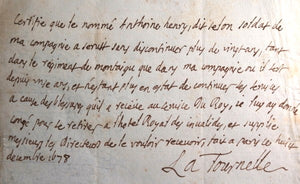 Certifie que le nommé Anthoine henry, dit leton soldat de
ma compagnie a servit sens discontinuer plus de vingt ans, tant
dans le regiment de montaigu que dans ma compagnie ou il est
depuis six ans, et n'estant plus en estat de continuer les services
a cause des blessures qu'il a receue au service Du Roy, ie luy ay donné
congé pour se retirer a lhotel Royal des inualides, et supplie
messieurs les directeurs de le vouloir recevoir, fait a paris ce huit
decembre 1678
La Tournelle